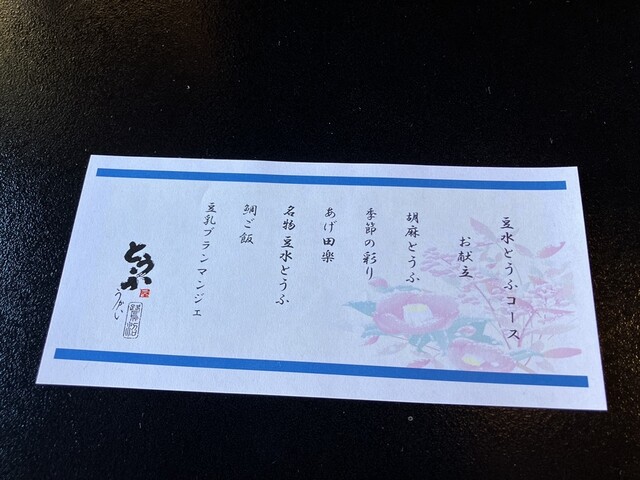 豆水とうふコース
お献立
胡麻とうふ
季節の彩り
あげ田楽
名物豆水とうふ
鯛ご飯
豆乳ブランマンジェ
とうふ
屋
うかい
鷺沼